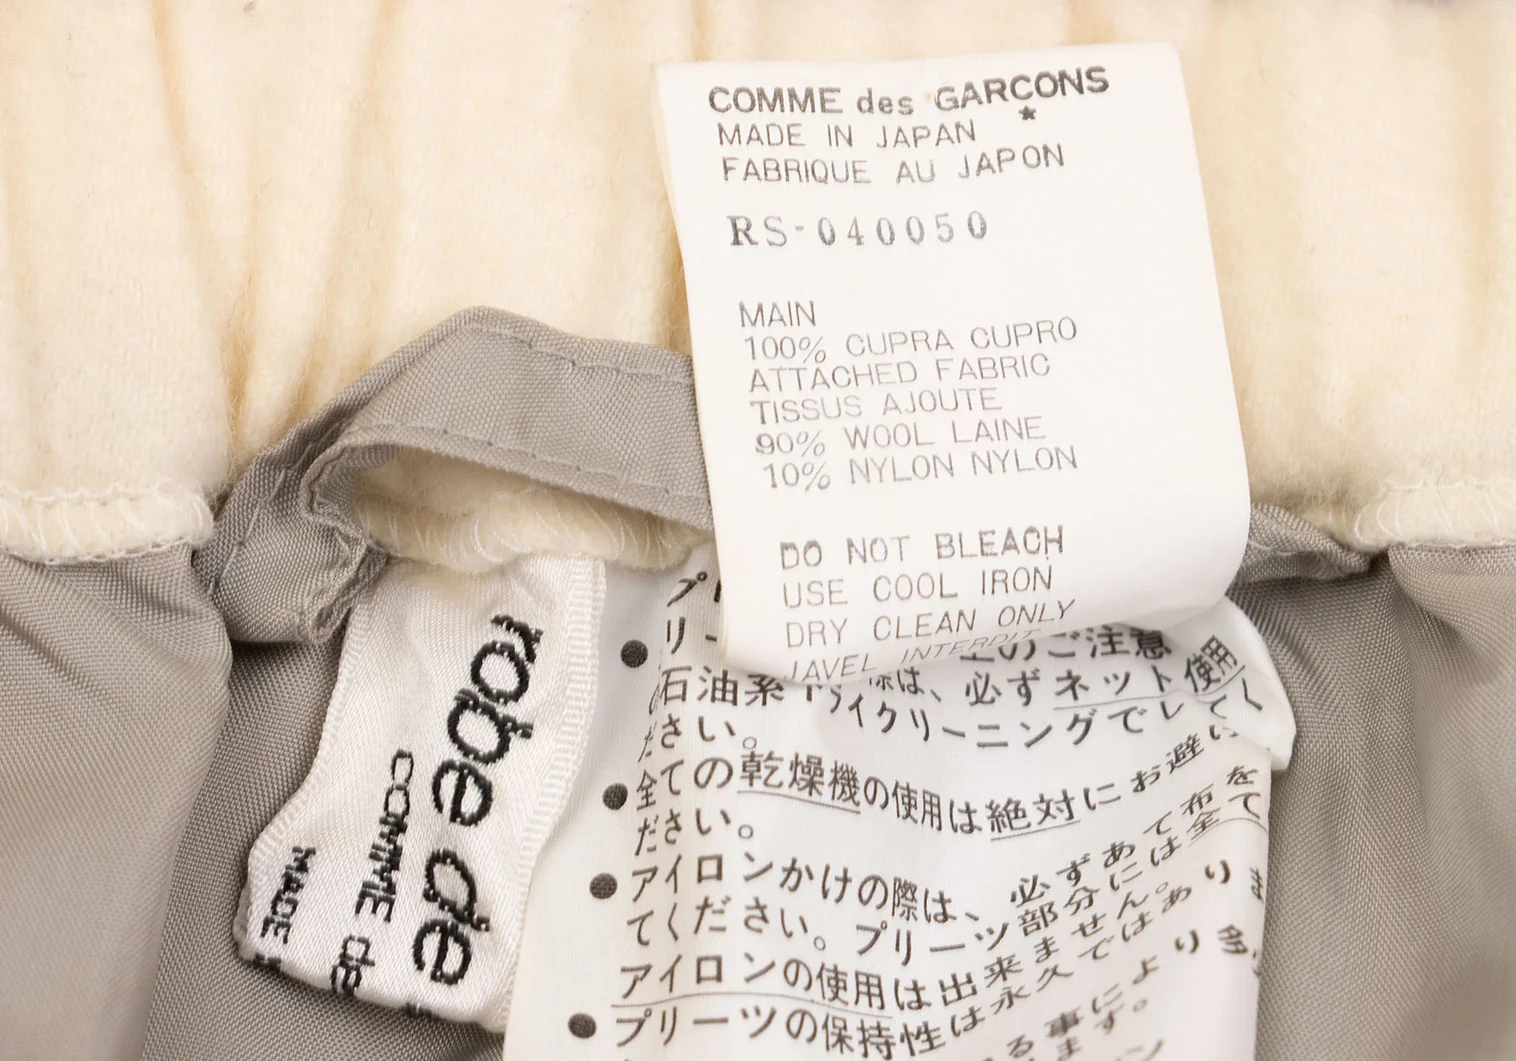 COMME des GARCONS
★
MADE IN JAPAN
FABRIQUE AU JAPON
RS-040050
MAIN
100% CUPRA CUPRO
ATTACHED FABRIC
TISSUS AJOUTE
90% WOOL LAINE
10% NYLON NYLON
DO NOT BLEACH
USE COOL IRON
DRY CLEAN ONLY
JAVEL INTERDIT
robe de
COMME de
MADE
プリ
のご注意
●リー 際は、必ずネット使用く
石油系ドライクリーニングでしてく
ださい。
●全ての乾燥機の使用は絶対にお避け
ださい。
●アイロンかけの際は、必ずあて布を
てください。プリーツ部分には全て
アイロンの使用は出来ません。あり
●プリーツの保持性は永久ではあり